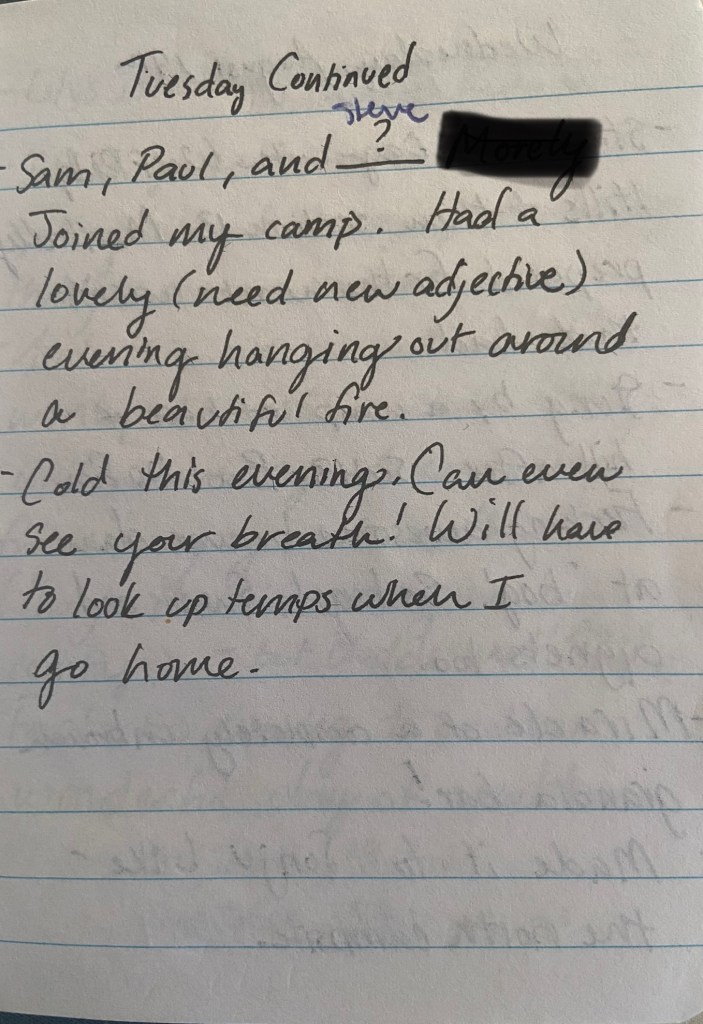 Tuesday Continued
steve
- Sam, Paul, and ?
Joined my camp. Had a
lovely (need new adjective)
evening hanging out around
a beautiful fire.
- Cold this evening. Can even
see your breath! Will have
to look up temps when I
go home.